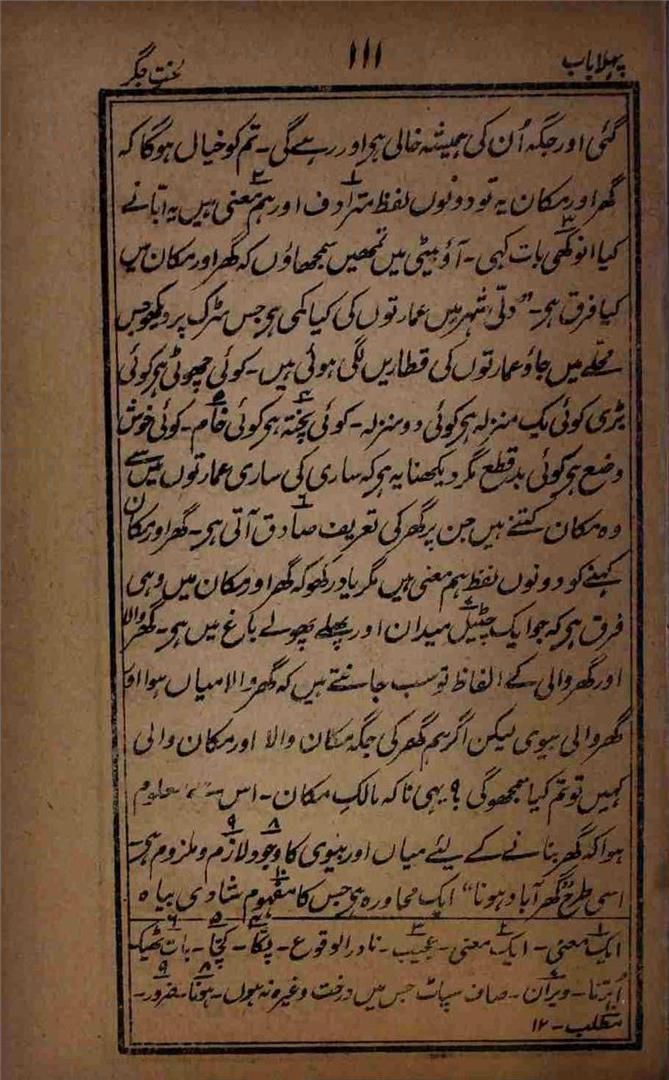 پہلا باب
۱۱۱
لختِ جگر
گئی اور جگہ اُن کی ہمیشہ خالی ہی اور رہے گی۔ تم کو خیال ہوگا کہ
گھر اور مکان یہ تو دونوں لفظ مترادف اور ہم معنی ہیں یہ ابّا نے
کیا انوکھی بات کہی۔ آؤ بیٹی میں تمھیں سمجھاؤں کہ گھر اور مکان میں
کیا فرق ہی۔ ”دلّی شہر میں عمارتوں کی کیا کمی ہی جس سڑک پر دیکھو جس
محلّے میں جاؤ عمارتوں کی قطاریں لگی ہوئی ہیں۔ کوئی چھوٹی ہی کوئی
بڑی کوئی یک منزلہ ہی کوئی دو منزلہ۔ کوئی پختہ ہی کوئی خام۔ کوئی خوش
وضع ہی کوئی بد قطع مگر دیکھنا یہ ہی کہ ساری کی ساری عمارتوں میں سے
وہ مکان کتنے ہیں جن پر گھر کی تعریف صادق آتی ہی۔ گھر اور مکان
کہنے کو دونوں لفظ ہم معنی ہیں مگر یاد رکھو کہ گھر اور مکان میں وہی
فرق ہی کہ جو ایک چٹیل میدان اور پھلے پھولے باغ میں ہی۔ گھر والا
اور گھر والی کے الفاظ تو سب جانتے ہیں کہ گھر والا میاں ہوا اور
گھر والی بیوی لیکن اگر ہم گھر کی جگہ مکان والا اور مکان والی
کہیں تو تم کیا سمجھو گی؟ یہی نا کہ مالکِ مکان۔ اس سے معلوم
ہوا کہ گھر بنانے کے لیئے میاں اور بیوی کا وجود لازم و ملزوم ہی۔
اسی طرح ”گھر آباد ہونا“ ایک محاورہ ہی جس کا مفہوم شادی بیاہ
۱ ایک معنی۔ ۲ ایک معنی۔ ۳ عجیب۔ نادر الوقوع۔ ۴ پکّا۔ ۵ کچّا۔ ۶ بات ٹھیک
اُترنا۔ ۷ ویران۔ صاف سپاٹ جس میں درخت وغیرہ نہ ہوں۔ ۸ ہونا۔ ۹ ضرور۔
۱۰ مطلب۔ ۱۲